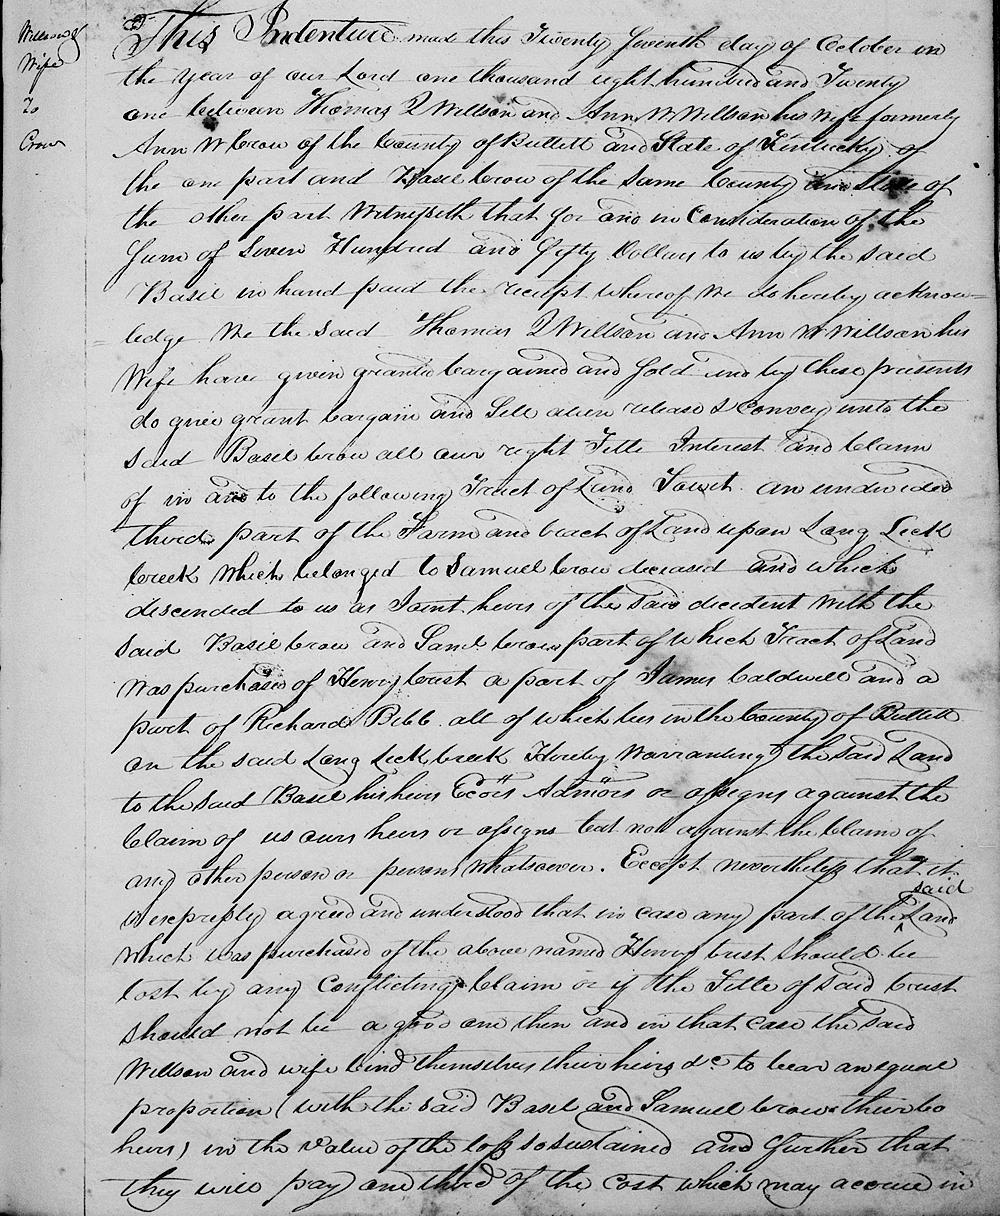 Willson &
Wife
To
Crow
This Indenture made this Twenty Seventh day of October in
the Year of our Lord one thousand eight hundred and Twenty
one between Thomas Q Willson and Ann W Willson his Wife formerly
Ann W Crow of the County of Bullett and State of Kentucky of
the one part and Basil Crow of the same County and State of
the other part Witnesseth that for and in Consideration of the
Sum of Seven Hundred and fifty Dollars to us by the said
Basil in hand paid the receipt whereof we do hereby acknow=
=ledge We the said Thomas Q Willson and Ann W Willson his
Wife have given granted bargained and Sold and by these presents
do give grant bargain and Sell alien release & Convey unto the
said Basil Crow all our right Title Interest and Claim
of in and to the following Tract of Land Towit. an undivided
third part of the Farm and tract of Land upon Long Lick
Creek Which belonged to Samuel Crow deceased and which
descended to us as Joint heirs of the said decedent With the
said Basil Crow and Saml Crow part of which Tract of Land
was purchased of Henry Crist a part of James Caldwell and a
part of Richard Bibb all of which lies in the County of Bullett
on the said Long Lick Creek Hereby Warranting the said Land
to the said Basil his heirs Ecors Admors or assigns against the
Claim of us ours heirs or assigns but not against the Claim of
any other person or persons Whatsoever. Except nevertheless that it
is expressly agreed and understood that in case any part of the said Land
Which was purchased of the above named Henry Crist should be
lost by any Conflicting Claim or if the Title of said Crist
should not be a good one then and in that case the said
Willson and wife bind themselves their heirs &c to bear an equal
proportion (with the said Basil and Samuel Crow their Co
heirs) in the Value of the loss so sustained and further that
they will pay one third of the Cost which may accrue in